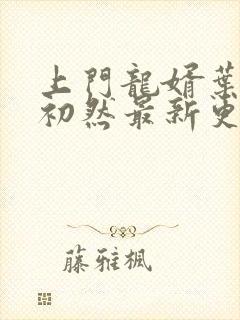 上門龍婿葉
初然最新更
藤雅楓